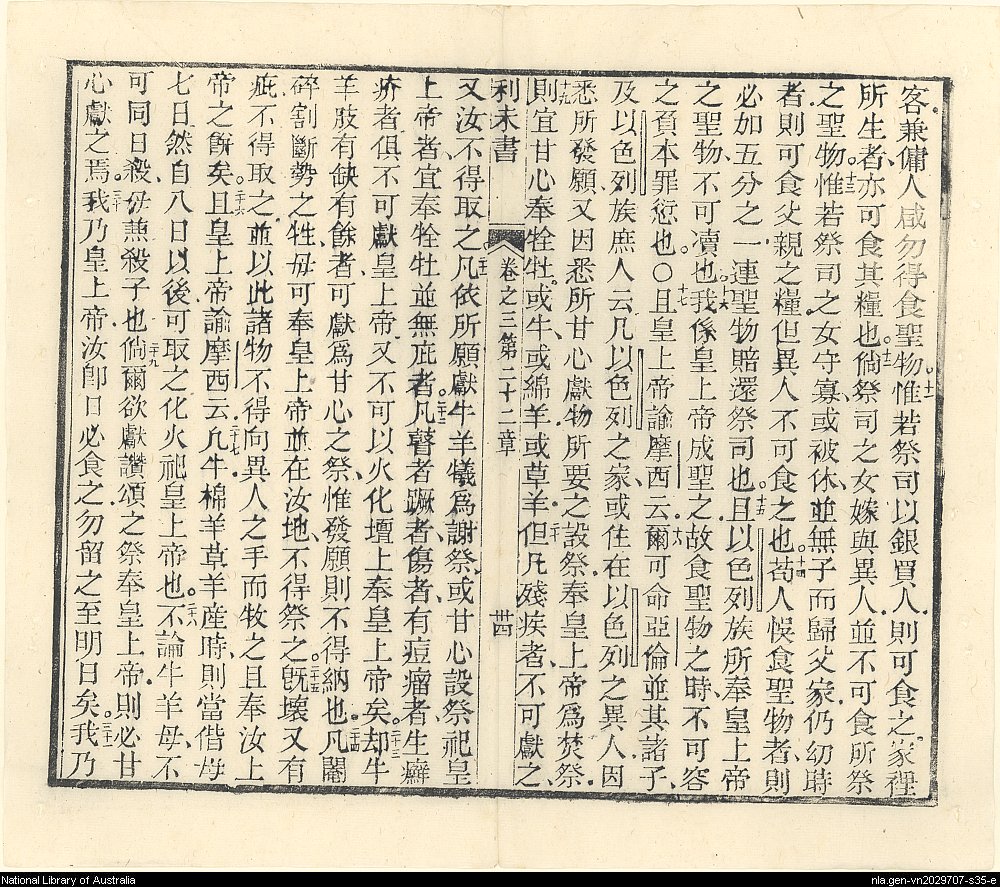 客兼傭人咸勿得食聖物惟若祭司以銀買人則可食之家裡
十一
所生者亦可食其糧也倘祭司之女嫁與異人並不可食所祭
十二
之聖物惟若祭司之女守寡或被休並無子而歸父家仍幼時
十三
者則可食父親之糧但異人不可食之也苟人悞食聖物者則
十四
必如五分之一連聖物賠還祭司也且以色列族所奉皇上帝
十五
之聖物不可凟也我係皇上帝成聖之故食聖物之時不可容
十六
之負本罪愆也○且皇上帝諭摩西云爾可命亞倫並其諸子
十七
十八
及以色列族庶人云凡以色列之家或住在以色列之異人因
悉所發願又因悉所甘心獻物所要之設祭奉皇上帝爲焚祭
則宜甘心奉牲牡或牛或綿羊或草羊但凡殘疾者不可獻之
十九
二十
利未書
卷之三第二十二章
卅四
又汝不得取之凡依所願獻牛羊犧爲謝祭或甘心設祭祀皇
上帝者宜奉牷牡並無庛者凡瞽者蹶者傷者有痘瘤者生癬
疥者俱不可獻皇上帝又不可以火化壇上奉皇上帝矣却牛
二十三
羊肢有缺有餘者可獻爲甘心之祭惟發願則不得納也凡閹
二十四
碎割斷勢之牲毋可奉皇上帝並在汝地不得祭之旣壞又有
二十五
疵不得取之並以此諸物不得向異人之手而牧之且奉汝上
帝之餅矣且皇上帝諭摩西云凡牛棉羊草羊産時則當偕母
二十六
二十七
七日然自八日以後可取之化火祀皇上帝也不論牛羊母不
二十八
可同日殺毋𠔥殺子也倘爾欲獻讚頌之祭奉皇上帝則必甘
二十九
心獻之焉我乃皇上帝汝卽日必食之勿留之至明日矣我乃
三十
三十一
nla.gen-vn2029707-s35-e
National Library of Australia